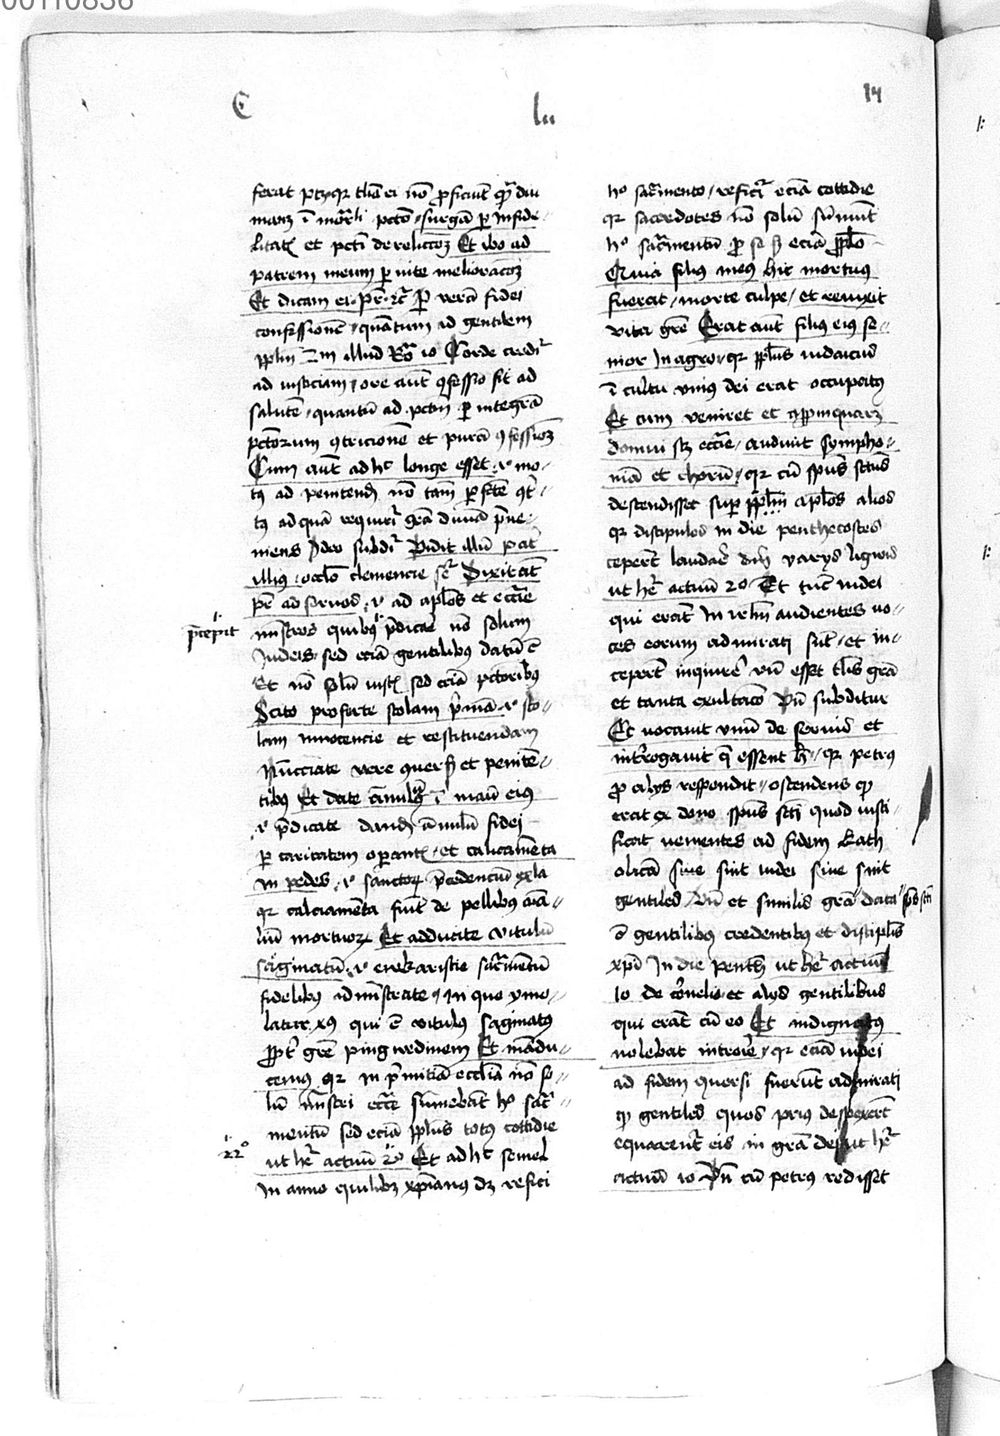 00110836
C lu 14
ferat ptqr tħa ei nō ꝓficiūt qȝ diu
manz ī mōrli pctō surgā ꝑ infide
litatis et pcti derelictōȝ Et ibo ad
patrem meum ꝑ vite melioracōȝ
Et dicam ei pr̄ rc̄ ꝑ verā fidei
confessionē quantum ad gentilem
pplm̄ Iux illud Ro 10 Corde credit̄
ad iusticiam ore aut ꝯfessio fit ad
salutē quantū ad pctm̄ ꝑ integrā
pctorum ꝯtricionē et purā ꝯfessioȝ
Cum aut adhc longe esset .i. mo
tꝰ ad penitend nō tam ꝑfcte
tꝰ ad quā requirit̄ grā diuīa p̄ue
niens Ideo subdit̄ Vidit illū pat̄
illiꝰ oclo clemencie sꝫ Dixit aūt
p̄r ad seruos .i. ad aplos et eccīe
p̄cepit
mīstros quibꝰ p̄dicare nō solum
Iudeis sed eciā gentilibus datū ē
Et nō solū iustis sed eciā pctoribꝰ
Scito proferte stolam p̄mā .i. sto
lam innocencie et restituendam
Nūcciate vere ꝯuersis et penitē
tibꝰ Et date anulū ī manū eiꝰ
.i. p̄dicate dand anulū fidei
ꝑ caritatem oꝑantis et calciamēta
in pedes .i. sanctoꝝ p̄cedenciū exla
qr calciamēta fiūt de pellibꝰ aīa
liū mortuoꝝ Et adducite vitulū
saginatū .i. eukaristie sac̄mentū
fidelibꝰ admīstrate in quo ymo
latur xꝰ qui ē vitulus saginatꝰ
ꝓpt̄ grē pingwedinem Et mādu
cemꝰ qr in p̄mitiua ecclīa nō so
lū mīstri eccīe sumebāt hȯ sac̄
mentū sed eciā pplus totꝰ cottidie
22°
ut hr̄ actuū 2° Et adhc semel
in anno quilibȝ xp̄ianus dȝ refici
hȯ sac̄mento reficit̄ eciā cottidie
qr sacerdotes nō solū sumūt
hȯ sac̄mentū ꝓ se sȝ eciā ꝓ pplo
Quia filius meus hic mortuus
fuerat morte culpe et reuixit
vita grē Erat aut filius eiꝰ se
nior in agro qr pplus iudaicus
ī cultu vniꝰ dei erat occupatꝰ
Et cum veniret et appinquaret
domui scȝ eccīe audiuit sympho
niā et chorū qr cū spūs sctūs
descendisset suꝑ pplm̄ aplos alios
qr discipulos in die penthecostes
ceperūt laudare dm̄ varijs lignis
ut hr̄ actuū 2° Et tūc iudei
qui erāt in irlm̄ audientes vo
ces eorum admirati sūt et in
ceperūt inquirē vn̄ esset tls grā
et tanta exultacō Vn̄ subditur
Et vocauit vnū de seruis et
interrogauit q̄ essent h̄ qr petrus
ꝓ alijs respondit ostendens ꝙ
erat ex dono spūs scti quod iusti
ficat venientes ad fidem kath
olicā siue sint iudei siue sint
gentiles Vn̄ et similis grā data spūs scti
ē gentilibꝰ credentibꝰ et discipulis
xp̄i in die penth ut hr̄ actuū
10 de Cornelio et alijs gentilibus
qui erāt cū eo Et indignatus
nolebat introire qr eciā iudei
ad fidem ꝯuersi fuerūt admirati
ꝙ gentiles quos prius despexerūt
equarent̄ eis in grā dei ut hr̄
actuū 10 Vn̄ cū petrus redisset